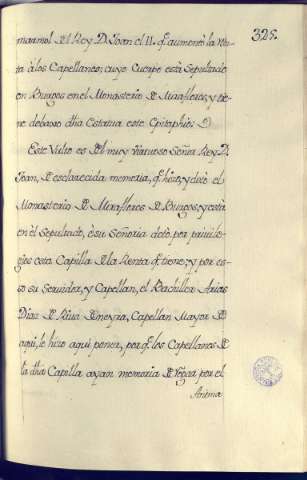 325.
marmol de el Rey D. Joan el II. q.e aumentò la Ren-
ta à los Capellanes; cuyo Cuerpo està Sepultado
en Burgos en el Monasterio de Miraflores, y tie-
ne debaxo dha Estatua este Epitaphio:
Este Vulto es del muy virtuoso Señor Rey D.
Joan, de esclarecida memoria, q.e hizo, y dotò el
Monasterio de Miraflores de Burgos; y està
en èl Sepultado, è su Señoria dotò por privile-
gios esta Capilla de la Renta q.e tiene; y por es-
so su Servidor, y Capellan, el Bachiller Arias
Diaz de Rivadeneyra, Capellan Mayor de
aqui, le hizo aqui poner, por q.e los Capellanes de
la dha Capilla ayan memoria de rogar por el
Anima